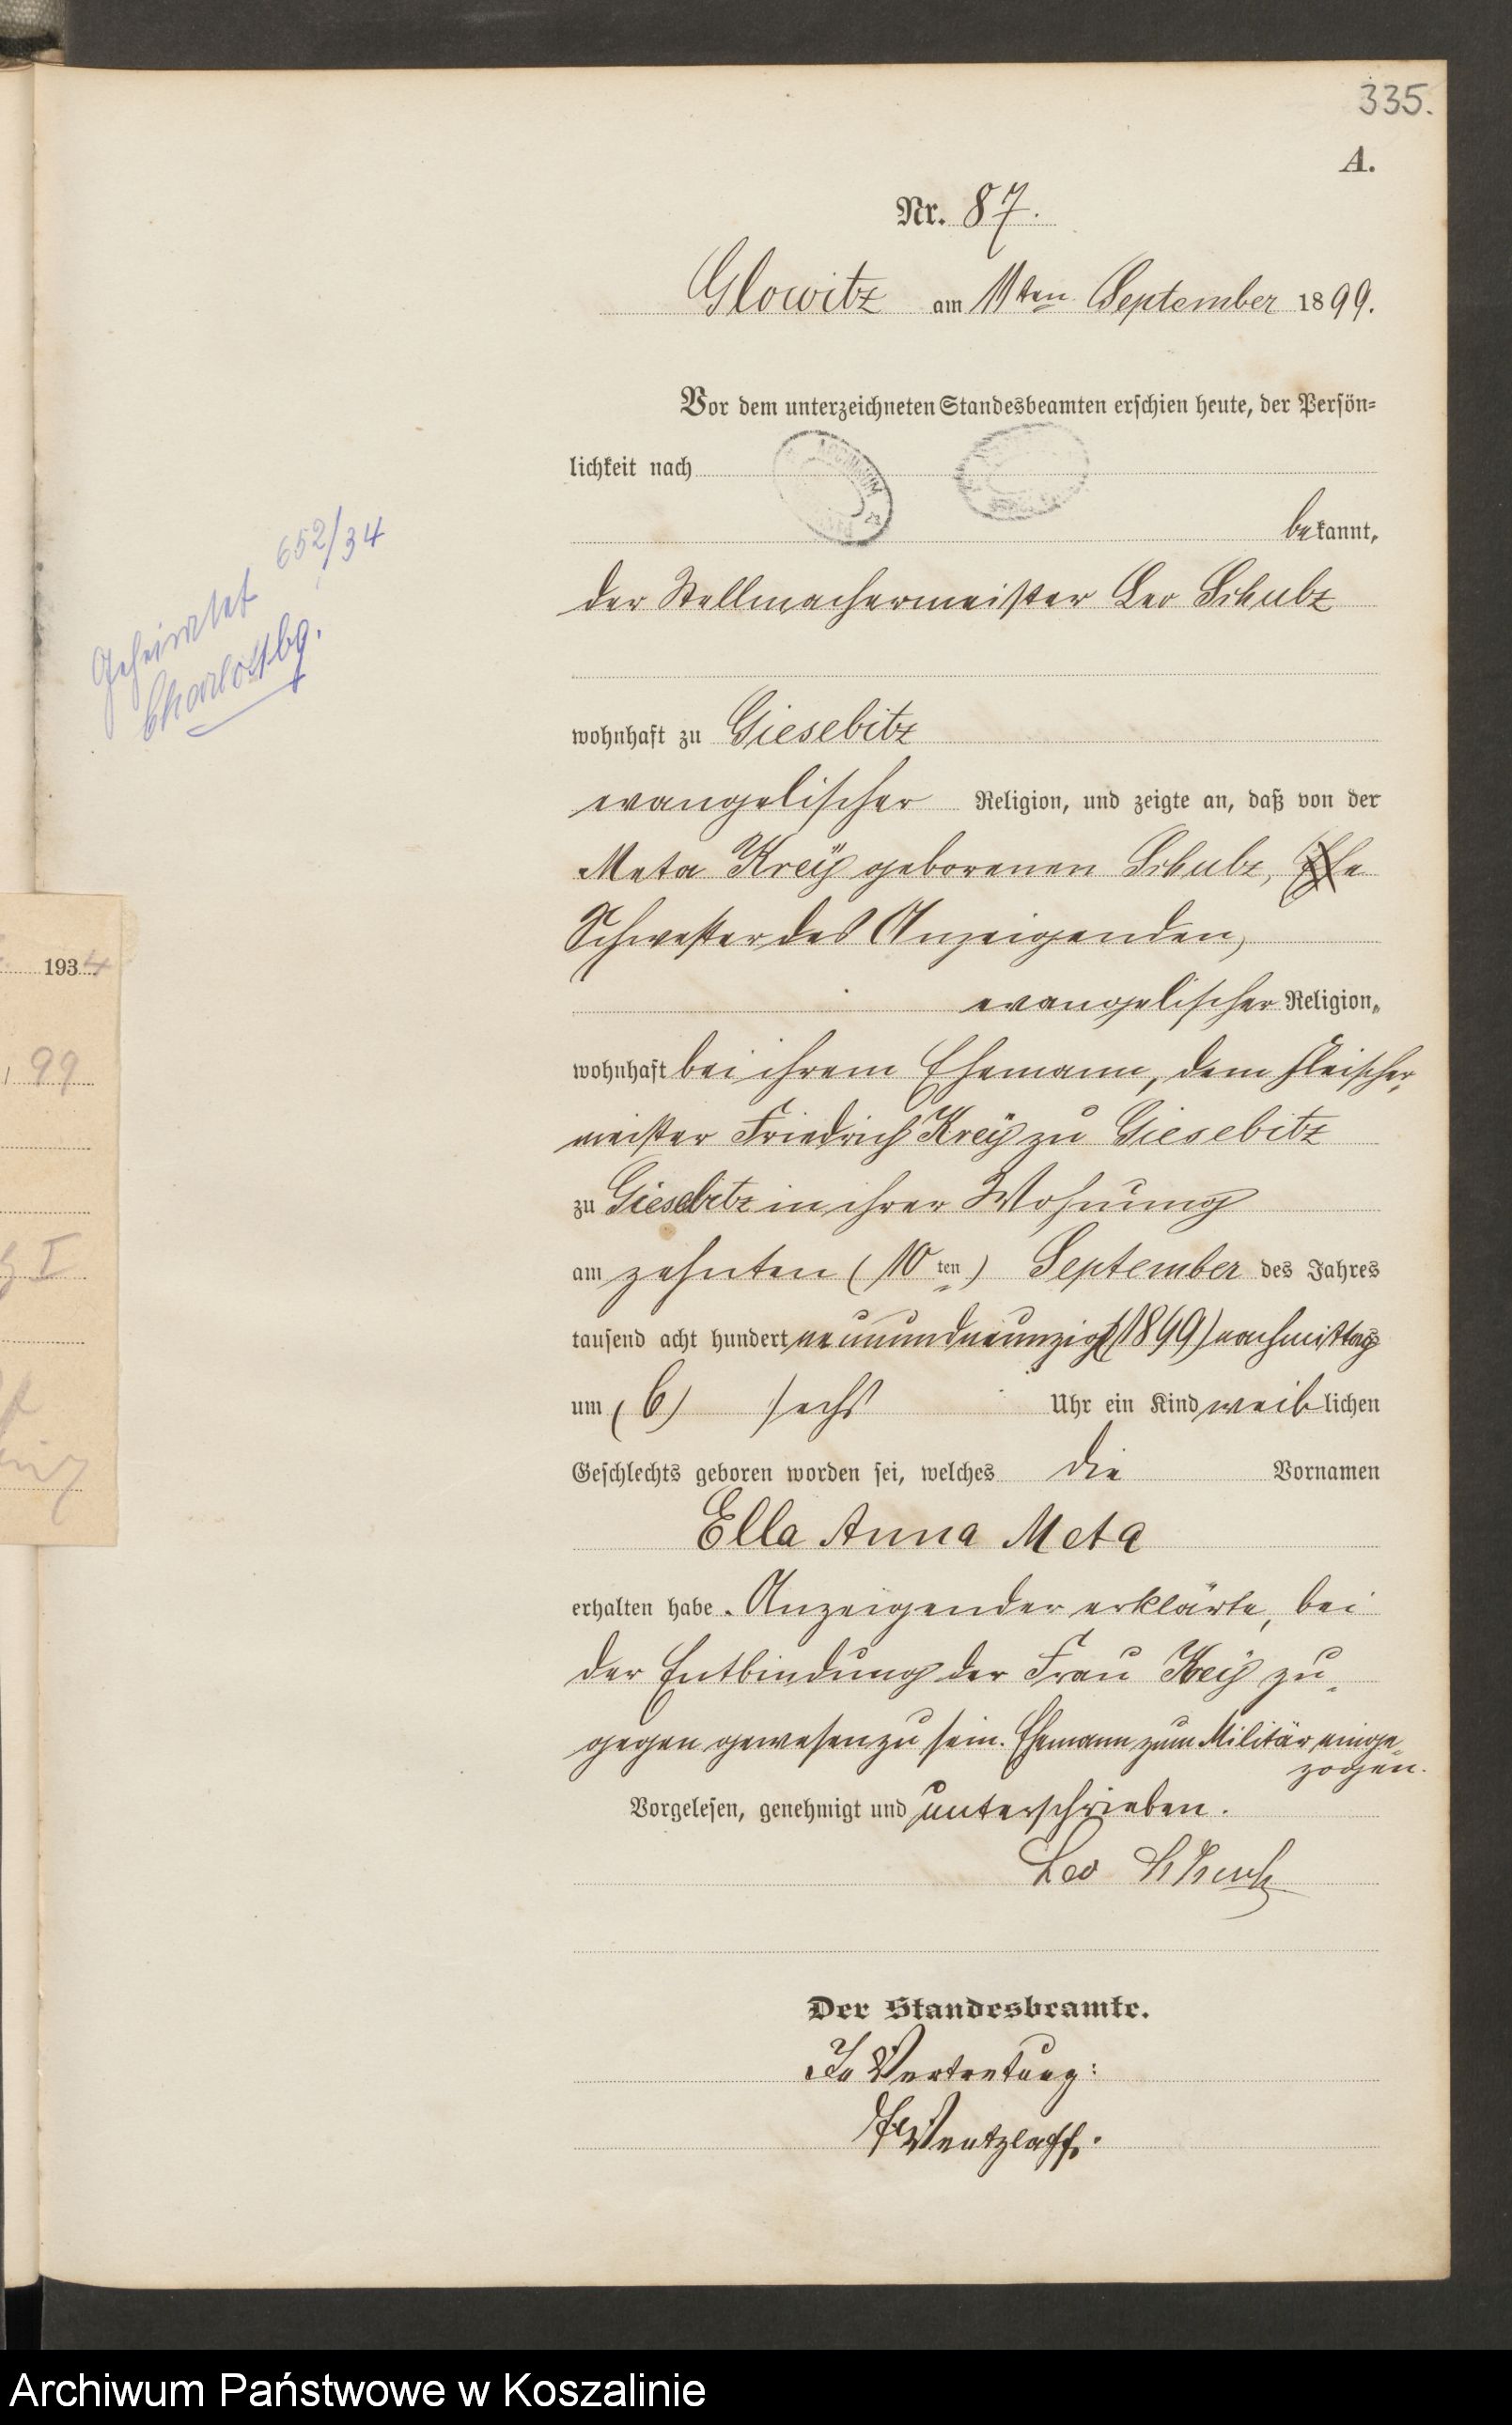 335.
A.
Nr. 87.
Glowitz am 11ten September 1899.
Vor dem unterzeichneten Standesbeamten erschien heute, der Persön=
lichkeit nach
bekannt,
der Stellmachermeister Leo Schulz
wohnhaft zu Giesebitz
evangelischer Religion, und zeigte an, daß von der
Meta Kreÿ geborenen Schulz, Ehe
Schwester des Anzeigenden,
evangelischer Religion,
wohnhaft bei ihrem Ehemann, dem Fleischer-
meister Friedrich Kreÿ zu Giesebitz
zu Giesebitz in ihrer Wohnung
am zehnten (10ten) September des Jahres
tausend acht hundert neunundneunzig (1899) nachmittags
um (6) sechs Uhr ein Kind weiblichen
Geschlechts geboren worden sei, welches die Vornamen
Ella Anna Meta
erhalten habe. Anzeigender erklärte, bei
der Entbindung der Frau Kreÿ zu-
gegen gewesen zu sein. Ehemann zum Militär einge-
zogen.
Vorgelesen, genehmigt und unterschrieben.
Leo Schulz
Der Standesbeamte.
In Vertretung:
Wentzlaff.
Geheiratet 652/34
Charlottbg.
1934
99
I
ARCHIWUM
Archiwum Państwowe w Koszalinie